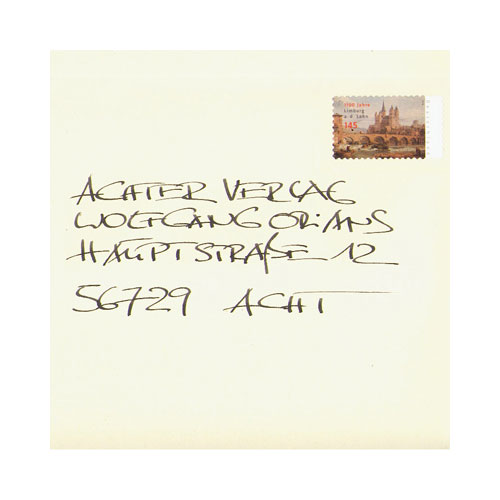 1100 Jahre
Limburg
a. d. Lahn
145
ACHTER VERLAG
WOLFGANG ORIANS
HAUPTSTRAßE 12
56729 ACHT